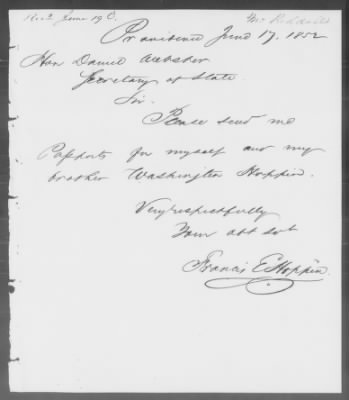 Recd June 19
Providence June 17. 1852
Hon Daniel Webster
Secretary of State.
Sir.
Please send me
Passports for myself and my
brother Washington Hoppin.
Very respectfully
Your obt svt
Francis E Hoppin.